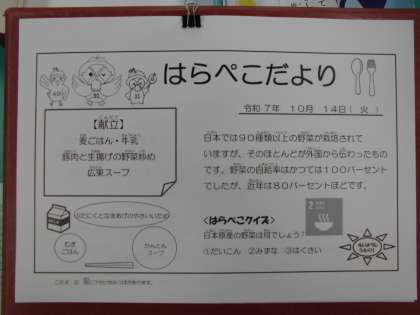 はらぺこだより
令和 7年 10月 14日(火)
【献立】
麦ごはん・牛乳
豚肉と生揚げの野菜炒め
広東スープ
日本では90種類以上の野菜が栽培されて
いますが、そのほとんどが外国から伝わったもの
です。野菜の自給率はかつては100パーセント
でしたが、近年は80パーセントほどです。
ぶたにくとなまあげのやさいいため
むぎ
ごはん
かんとん
スープ
<はらぺこクイズ>
日本原産の野菜は何でしょう?
①だいこん ②みずな ③はくさい
2